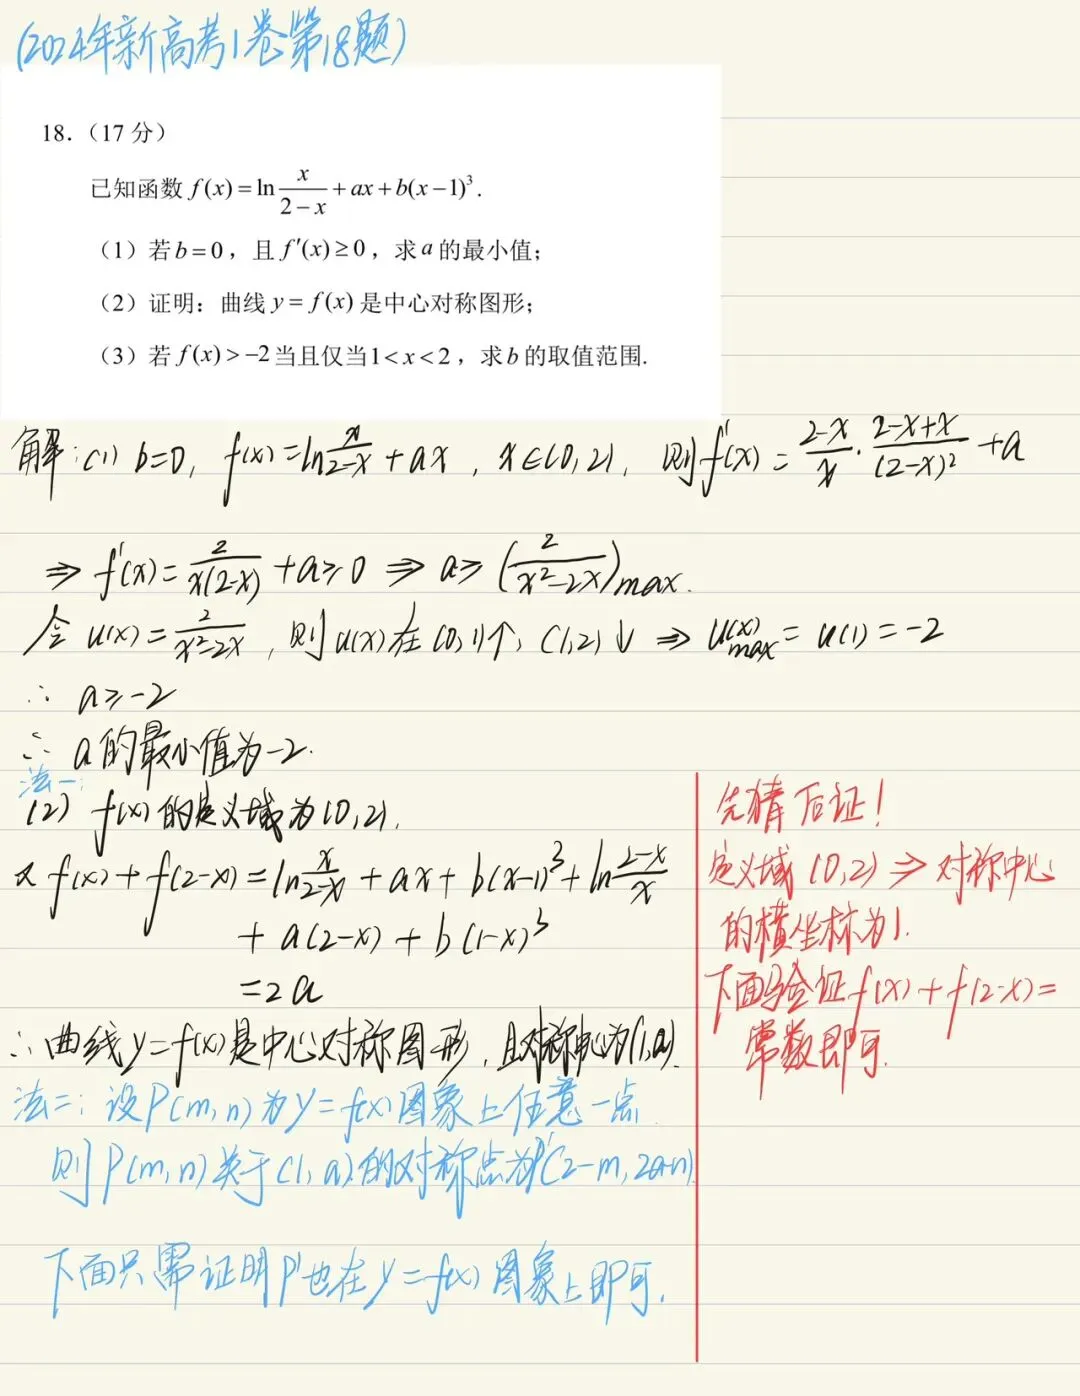 (2024年新高考1卷第18题)
18.（17 分）
已知函数 f(x)=ln x/(2−x)+ax+b(x−1)³.
（1）若b=0，且f′(x)≥0，求a的最小值；
（2）证明：曲线y=f(x)是中心对称图形；
（3）若f(x)>−2当且仅当1<x<2，求b的取值范围.
解:(1) b=0, f(x)=ln x/(2-x)+ax, x∈(0,2), 则f'(x)=(2-x)/x·(2-x+x)/(2-x)²+a
⇒ f'(x)=2/(x(2-x))+a≥0 ⇒ a≥(2/(x²-2x))max.
令u(x)=2/(x²-2x), 则u(x)在(0,1)↑, (1,2)↓ ⇒ u(x)max=u(1)=-2
∴ a≥-2
∴ a的最小值为-2.
法一:
(2) f(x)的定义域为(0,2),
又f(x)+f(2-x)=ln x/(2-x)+ax+b(x-1)³+ln (2-x)/x
+a(2-x)+b(1-x)³
=2a
∴曲线y=f(x)是中心对称图形,且对称中心为(1,a).
法二:设P(m,n)为y=f(x)图象上任意一点
则P(m,n)关于(1,a)的对称点为P'(2-m,2a-n)
下面只需证明P'也在y=f(x)图象上即可.
先猜后证!
定义域(0,2)⇒对称中心
的横坐标为1.
下面验证f(x)+f(2-x)=
常数即可.